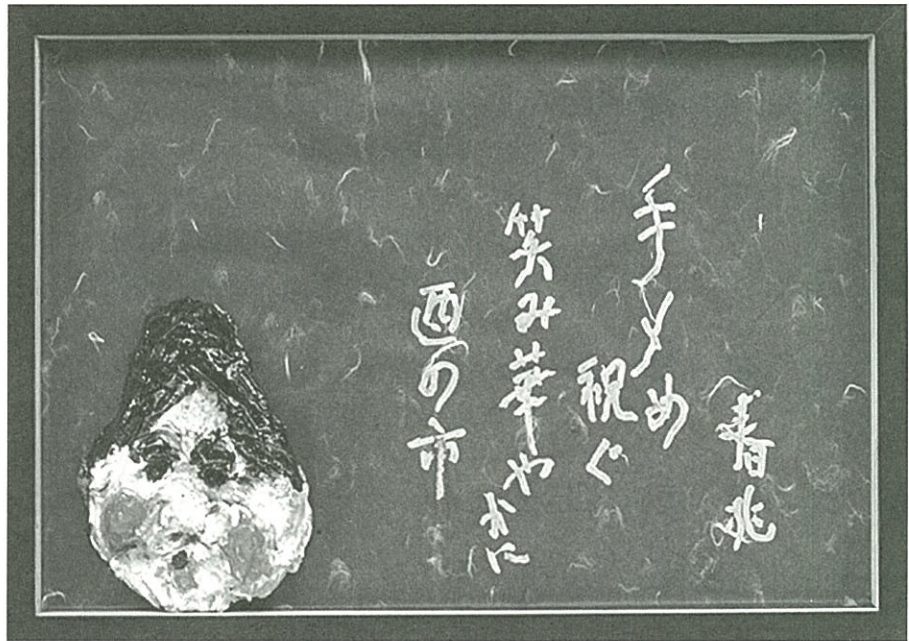 春兆
手〆め
祝ぐ
笑み華やかに
酉の市